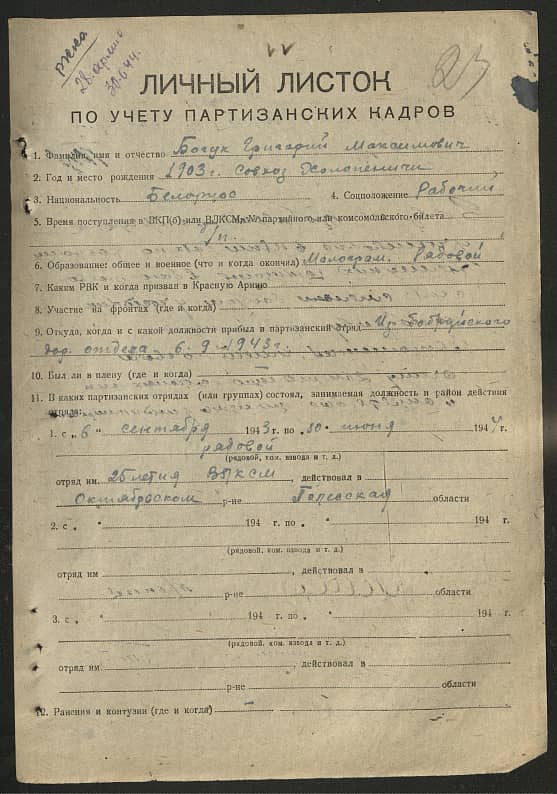 ржка
28. армию
30.6.44.
23
ЛИЧНЫЙ ЛИСТОК
ПО УЧЕТУ ПАРТИЗАНСКИХ КАДРОВ
1. Фамилия, имя и отчество Богук Григорий Максимович
2. Год и место рождения 1903 г. совхоз Холопеничи
3. Национальность Белорус 4. Соцположение Рабочий
5. Время поступления в ВКП(б) или ВЛКСМ, № партийного или комсомольского билета
б/п
6. Образование: общее и военное (что и когда окончил) Малограм. Рядовой
7. Каким РВК и когда призван в Красную Армию
8. Участие на фронтах (где и когда)
9. Откуда, когда и с какой должности прибыл в партизанский отряд Из Бобруйского
отдела 6.9-1943 г.
10. Был ли в плену (где и когда)
11. В каких партизанских отрядах (или группах) состоял, занимаемая должность и район действия
отряда:
1. с „6" сентября 1943 г. по „30" июня 1944 г.
рядовой
(рядовой, ком. взвода и т. д.)
отряд им. 25 летия ВЛКСМ, действовал в
Октябрьском р-не Полесская области
2. с „ " 194 г. по „ " 194 г.
(рядовой, ком. взвода и т. д.)
отряд им , действовал в
р-не области
3. с „ " 194 г. по „ " 194 г.
(рядовой, ком. взвода и т. д.)
отряд им. , действовал в
р-не области
12. Ранения и контузии (где и когда) –